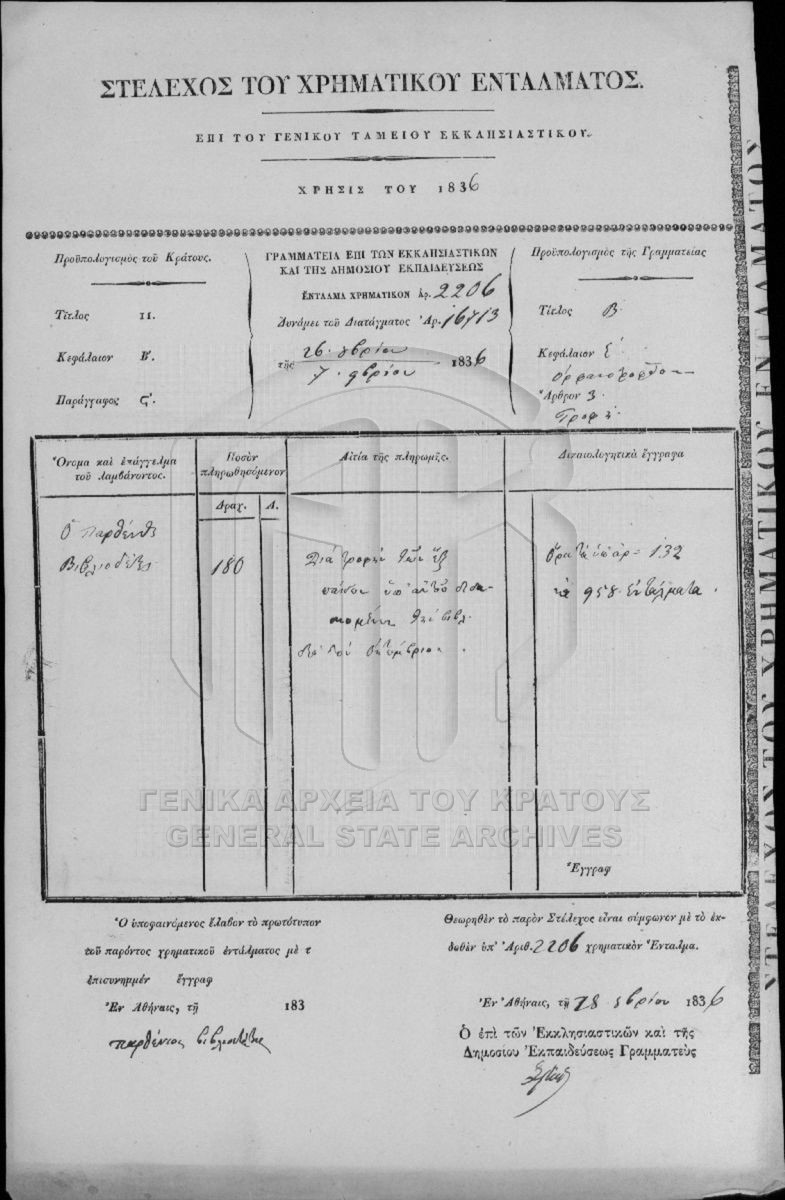 ΣΤΕΛΕΧΟΣ ΤΟΥ ΧΡΗΜΑΤΙΚΟΥ ΕΝΤΑΛΜΑΤΟΣ.
ΕΠΙ ΤΟΥ ΓΕΝΙΚΟΥ ΤΑΜΕΙΟΥ ΕΚΚΛΗΣΙΑΣΤΙΚΟΥ.
ΧΡΗΣΙΣ ΤΟΥ 1836
Προϋπολογισμὸς τοῦ Κράτους.
Τίτλος ΙΙ.
Κεφάλαιον Β'.
Παράγραφος ς'.
ΓΡΑΜΜΑΤΕΙΑ ΕΠΙ ΤΩΝ ΕΚΚΛΗΣΙΑΣΤΙΚΩΝ
ΚΑΙ ΤΗΣ ΔΗΜΟΣΙΟΥ ΕΚΠΑΙΔΕΥΣΕΩΣ
ΕΝΤΑΛΜΑ ΧΡΗΜΑΤΙΚΟΝ Ἀρ. 2206
Δυνάμει τοῦ Διατάγματος Ἀρ. 16713
26 8βρίου
τῆς 1836
7 9βρίου
Προϋπολογισμὸς τῆς Γραμματείας
Τίτλος Β.
Κεφάλαιον
Ἄρθρον 3.
Ὄνομα καὶ ἐπάγγελμα
τοῦ λαμβάνοντος.
Ποσὸν
πληρωθησόμενον
Αἰτία τῆς πληρωμῆς.
Δικαιολογητικὰ ἔγγραφα
Δραχ. Λ.
Ὁ Παρθένιος
180
Διὰ τροφὴν τῶν ἓξ
Ὅρα 132
τὰ 958 Ἐντάλματα.
Ἔγγραφ
ΓΕΝΙΚΑ ΑΡΧΕΙΑ ΤΟΥ ΚΡΑΤΟΥΣ
GENERAL STATE ARCHIVES
Ὁ ὑποφαινόμενος ἔλαβον τὸ πρωτότυπον
τοῦ παρόντος χρηματικοῦ ἐντάλματος μὲ τ
ἐπισυνημμέν ἔγγραφ
Ἐν Ἀθήναις, τῇ 183
παρθένιος
Θεωρηθὲν τὸ παρὸν Στέλεχος εἶναι σύμφωνον μὲ τὸ ἐκ-
δοθὲν ὑπ' Ἀριθ. 2206 χρηματικὸν Ἔνταλμα.
Ἐν Ἀθήναις, τῇ 28 8βρίου 1836
Ὁ ἐπὶ τῶν Ἐκκλησιαστικῶν καὶ τῆς
Δημοσίου Ἐκπαιδεύσεως Γραμματεὺς
ΣΤΕΛΕΧΟΣ ΤΟΥ ΧΡΗΜΑΤΙΚΟΥ ΕΝΤΑΛΜΑΤΟΣ